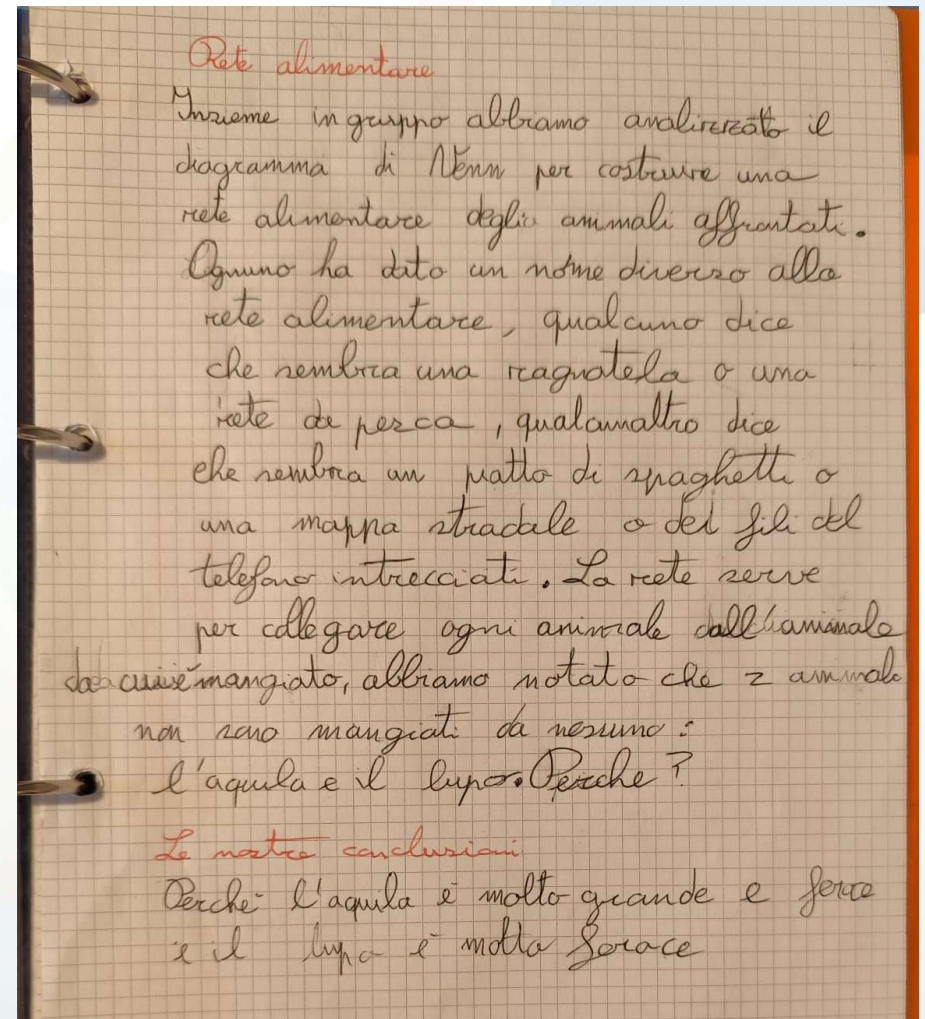 Rete alimentare
Insieme in gruppo abbiamo analizzato il
diagramma di Venn per costruire una
rete alimentare degli animali affrontati.
Ognuno ha dato un nome diverso alla
rete alimentare, qualcuno dice
che sembra una ragnatela o una
rete da pesca, qualcunaltro dice
che sembra un piatto di spaghetti o
una mappa stradale o dei fili del
telefono intrecciati. La rete serve
per collegare ogni animale dall'animale
da cui è mangiato, abbiamo notato che 2 animali
non sono mangiati da nessuno:
l'aquila e il lupo. Perche?
Le nostre conclusioni
Perchè l'aquila è molto grande e
e il lupo è molto